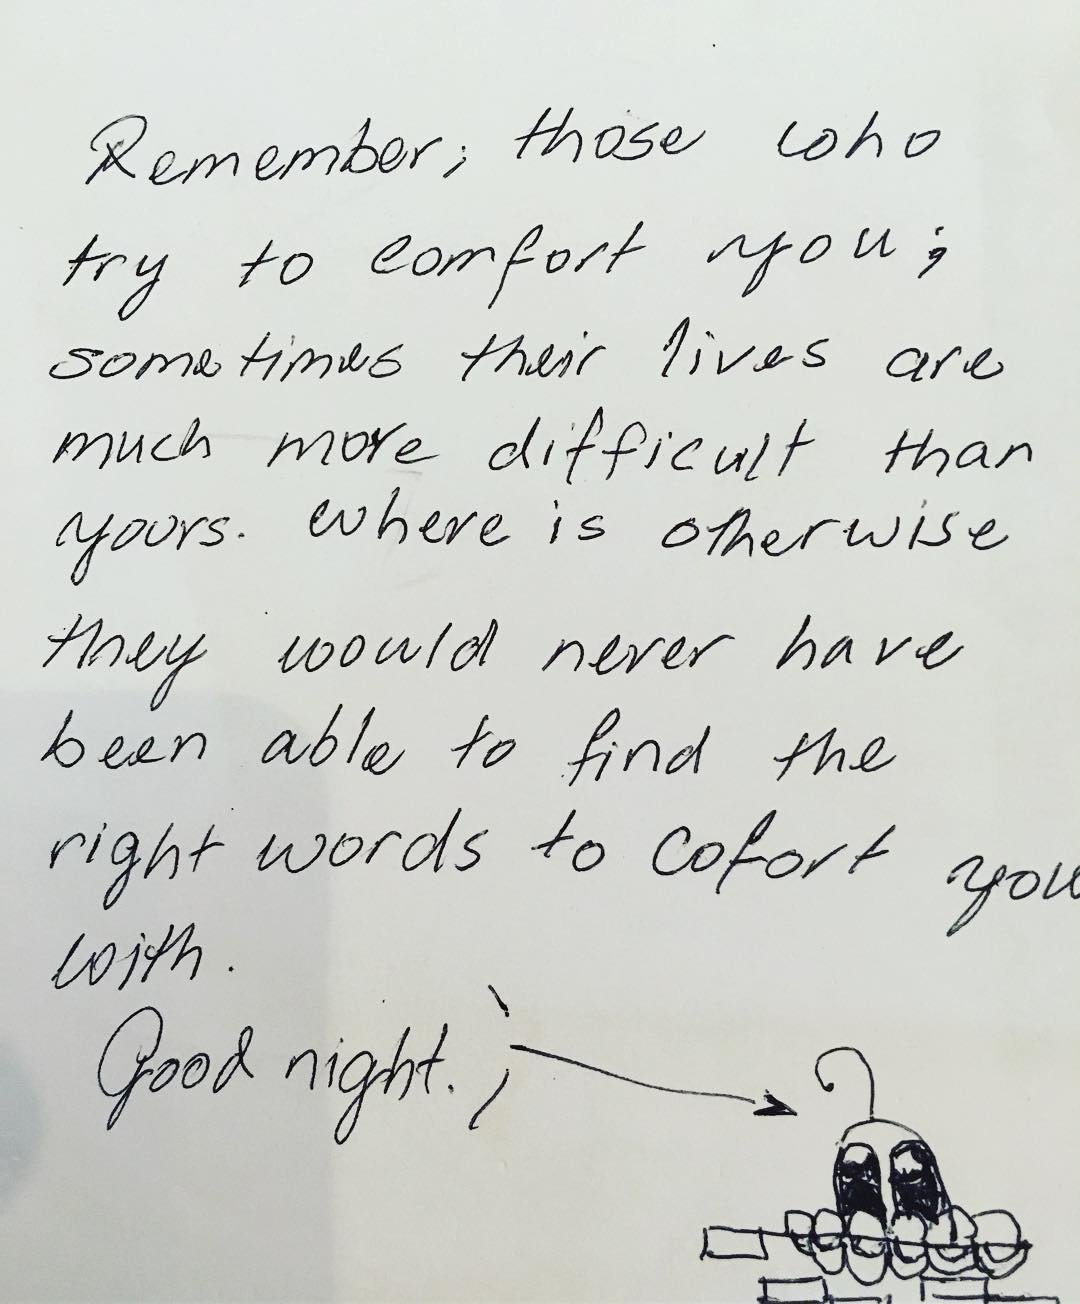 Remember; those who
try to comfort you;
sometimes their lives are
much more difficult than
yours. Where is otherwise
they would never have
been able to find the
right words to cofort you
with.
Good night.